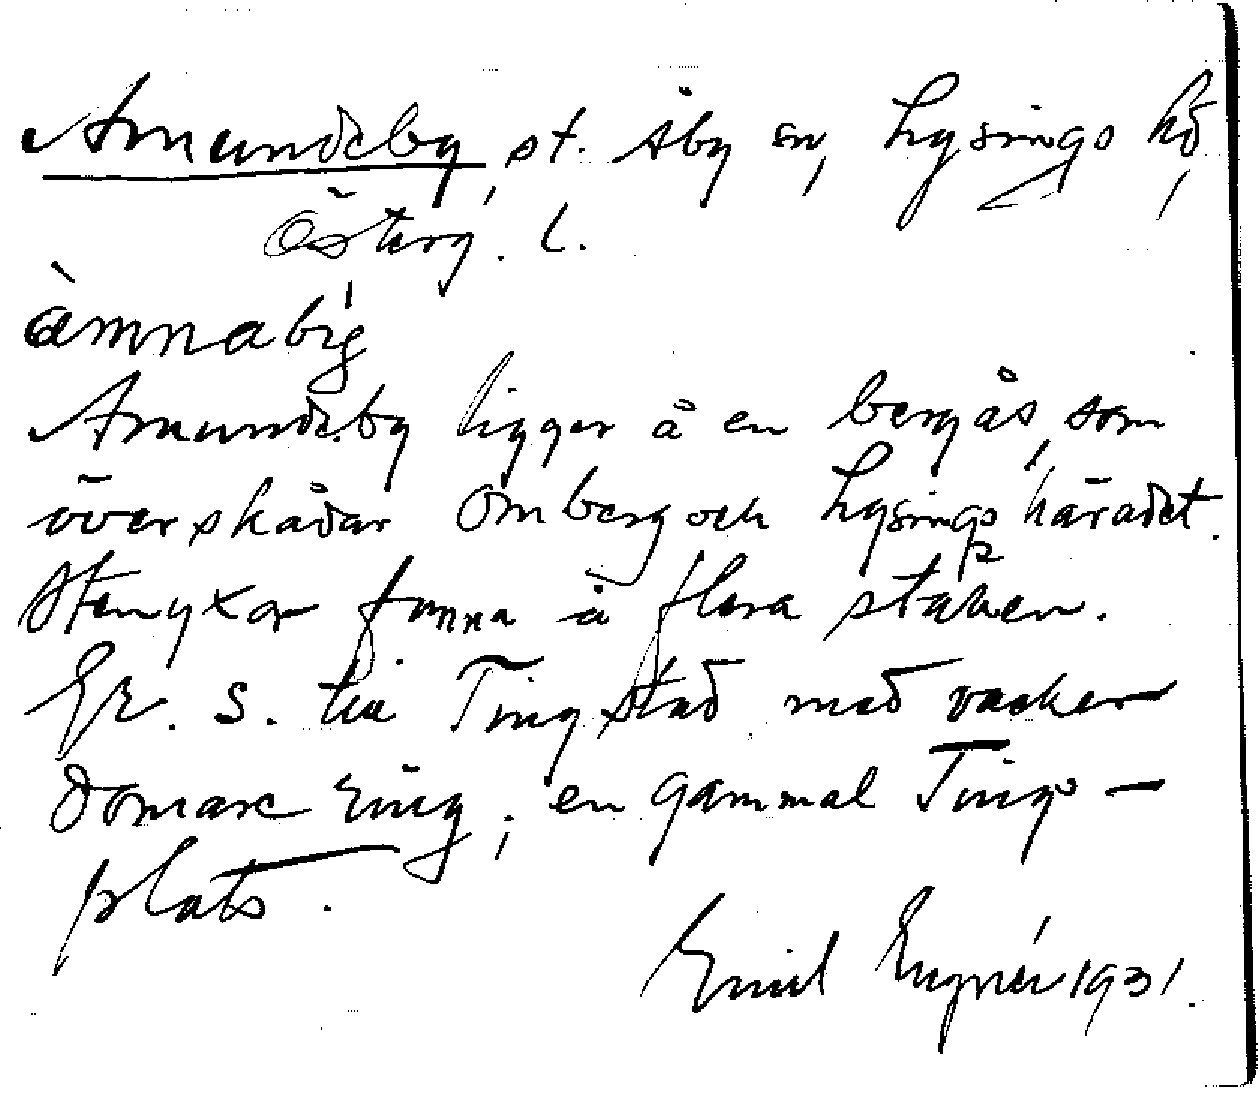 Amundeby, st. Åby sn, Lysings hd,
Österg. l.
àmnabý
Amundeby ligger å en bergås, som
överskådar Omberg och Lysings häradet.
Stenyxor funna å flera ställen.
S. till Tingstad med vacker
domarering, en gammal Tings-
plats.
Emil Engnér 1931.